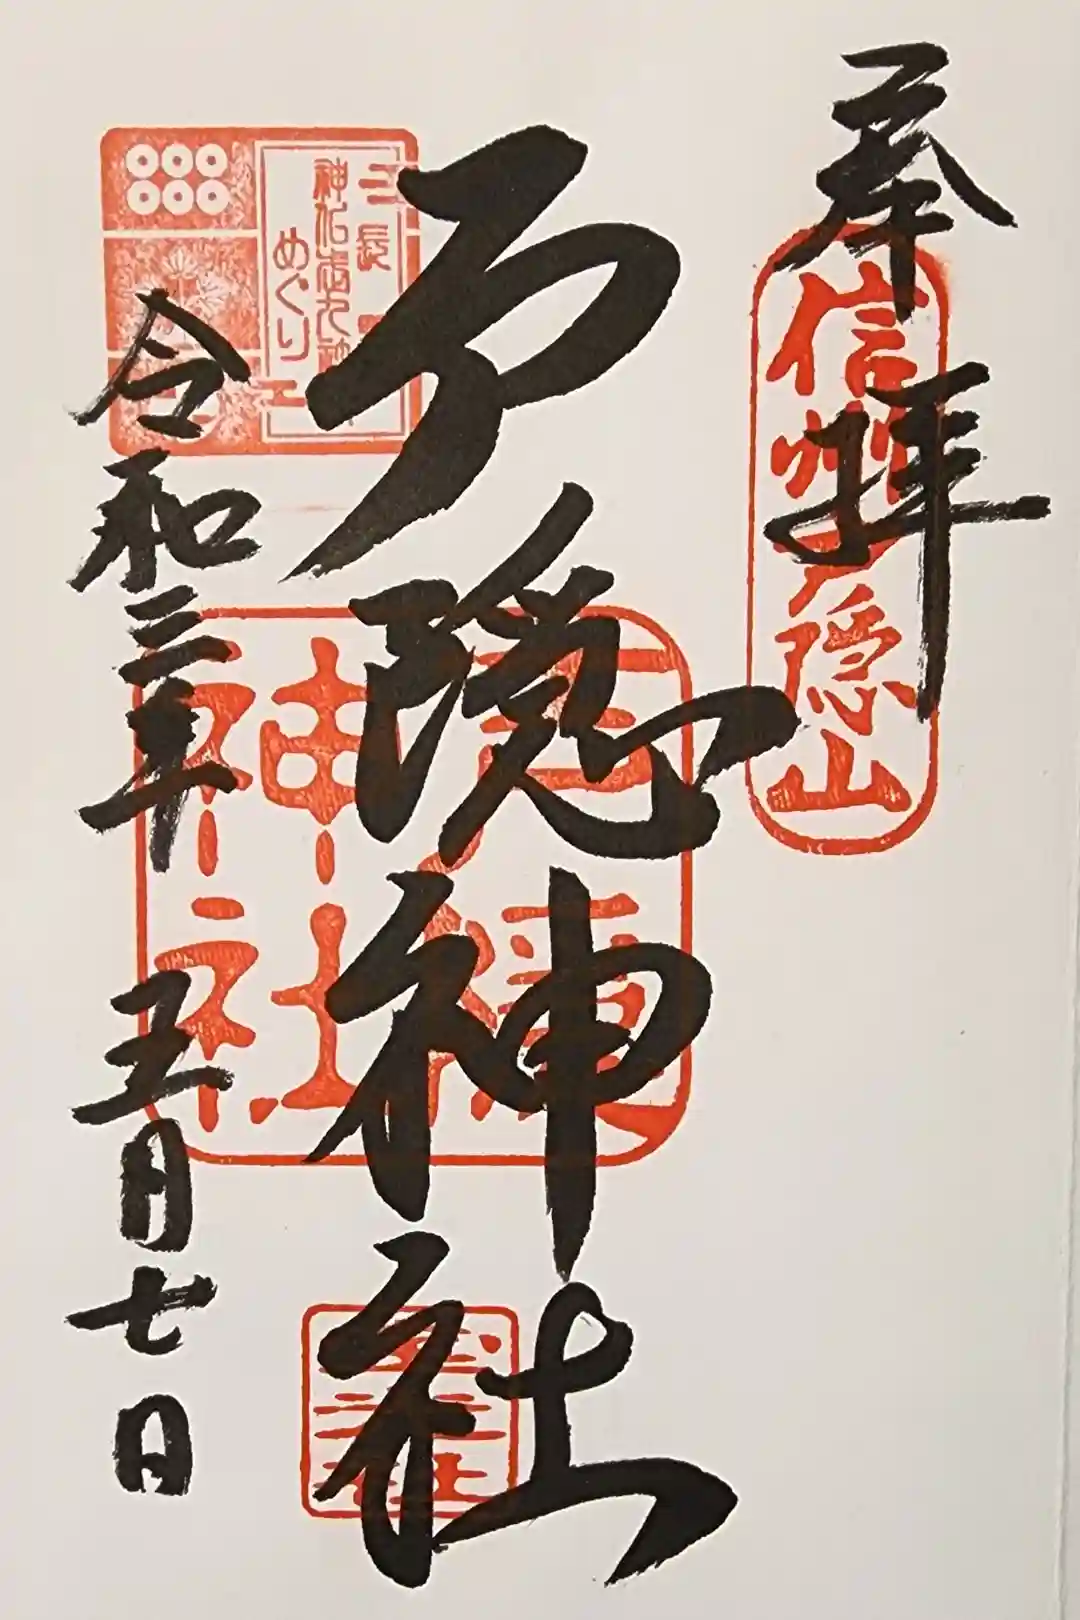 奉拝
信州戸隠山
戸隠神社
戸隠
神社
めぐり
令和三年五月七日